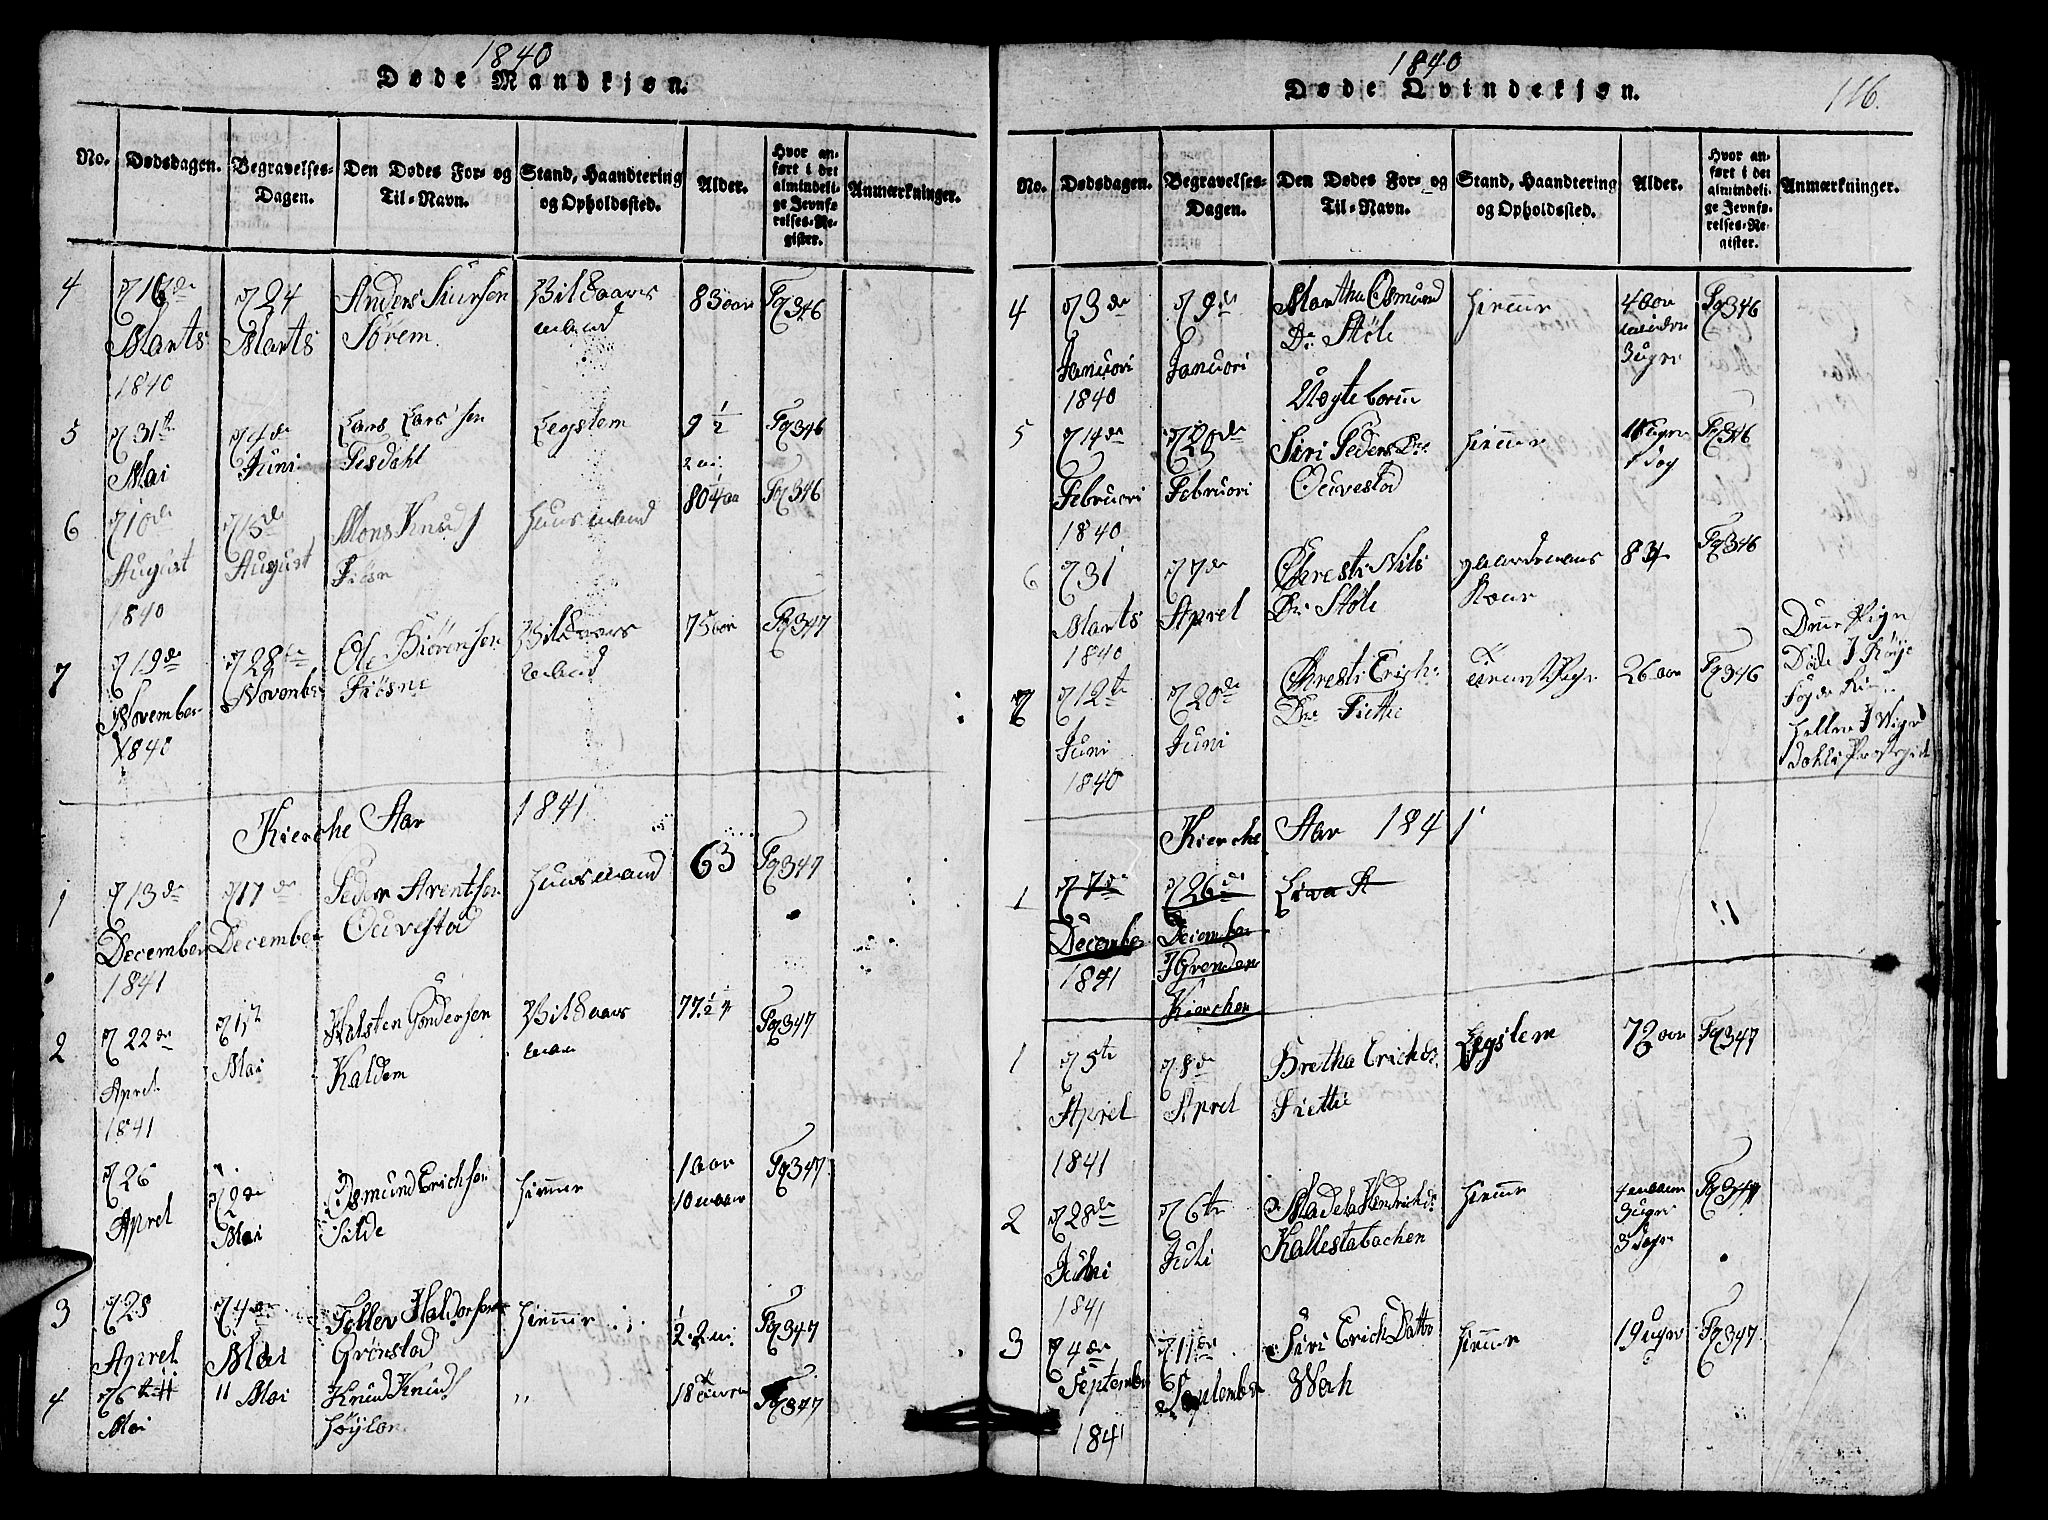 1840
Døde Mandkjøn.
No.
Dødsdagen.
Begravelses-
Dagen.
Den Dødes For- og
Til-Navn.
Stand, Haandtering
og Opholdssted.
Alder.
Hvor an-
ført i det
almindeli-
ge Jevnfø-
relses-Re-
gister.
Anmærkninger.
4
16de
Marts
1840
24
Marts
Anders Siursen
Sørem
Vilkaars
mand
83 aar
Fg 346
5
31te
Mai
4de
Juni
Lars Lars sen
Tesdahl
Legslem
9 1/2
Fg 346
6
10de
August
1840
15de
August
Mons Knud
Fiøsn
Huusmand
80
Fg 346
7
19de
November
1840
28te
November
Ole Biørensen
Fiøsne
Vilkaars
mand
75 aar
Fg 347
Kierche Aar 1841
1
13de
December
1841
17de
December
Peder Arentsen
Ouvestad
Huusmand
63
Fg 347
2
22de
Aprel
1841
1st
Mai
Halsten Gundersen
Kaldem
Vilkaars
man
77 1/2
Fg 347
26
Aprel
2de
Mai
Osmund Erichsen
Silde
Hiemmer
1 aar
10
Fg 347
3
28
Aprel
4de
Mai
Tollev Haldorsen
Grønstad
Hiemmer
Fg 347
4
6te
Mai
11 Mai
Knud Knud
Høylor
"
18
Fg 347
1840
Døde Qvindekjøn.
116.
No.
Dødsdagen.
Begravelses-
Dagen.
Den Dødes For- og
Til-Navn.
Stand, Haandtering
og Opholdssted.
Alder.
Hvor an-
ført i det
almindeli-
ge Jevnfø-
relses-Re-
gister.
Anmærkninger.
4
3de
Januori
1840
9de
Januori
Martha Osmund
Dr Støle
Uægteboren
Hiemmr
4 aar
3 ugr
Fg 346
5
14de
Februori
1840
20de
Februori
Siri Peders Dtr
Ouvestad
Hiemmr
1 Dag
Fg 346
6
31
Marts
1840
7de
Aprel
Christi Nils
Dr Støle
gaardmans
Kone
83
Fg 346
7
12te
Juni
1840
20de
Juni
Christi Erichs
Dr Fiette
26 aar
Fg 346
Døde I
Kierche Aar 1841
1
7de
December
1841
26de
December
I Grenden
Kierchen
Liva
1
5te
Aprel
1841
8de
Aprel
Bretha Erichs
Fiette
Legslem
72 aar
Fg 347
2
28de
Juni
1841
6te
Juli
Madela Hendrichs
Kallestabachen
Hiemmr
3 ugr
3 Dagr
Fg 347
3
4de
September
1841
11de
September
Siri Erich Datter
Werh
Hiemmr
19 ugr
Fg 347